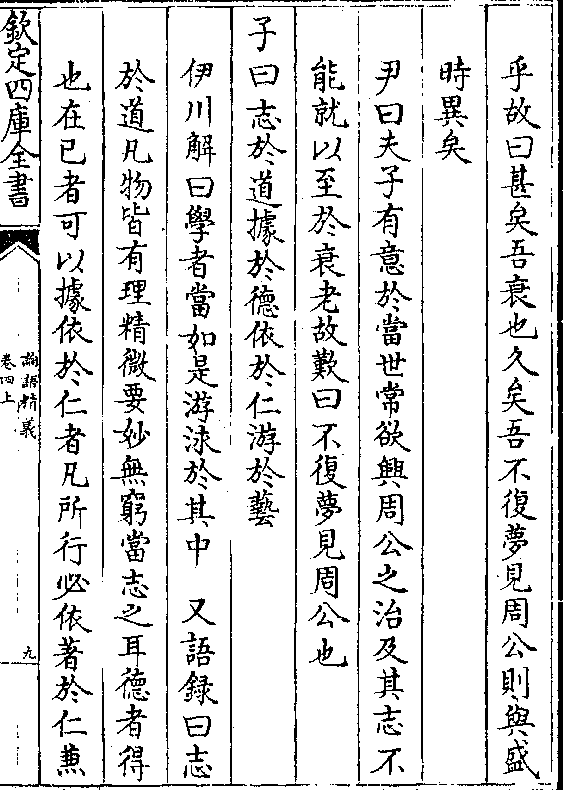 乎故曰甚矣吾衰也久矣吾不復夢見周公則與盛
時異矣
尹曰夫子有意於當世常欲興周公之治及其志不
能就以至於衰老故歎曰不復夢見周公也
子曰志於道據於德依於仁游於藝
伊川解曰學者當如是游泳於其中　又語録曰志
於道凡物皆有理精微要妙無窮當志之耳德者得
也在已者可以據依於仁者凡所行必依著於仁兼
欽定四庫全書
論語精義
卷四上
九